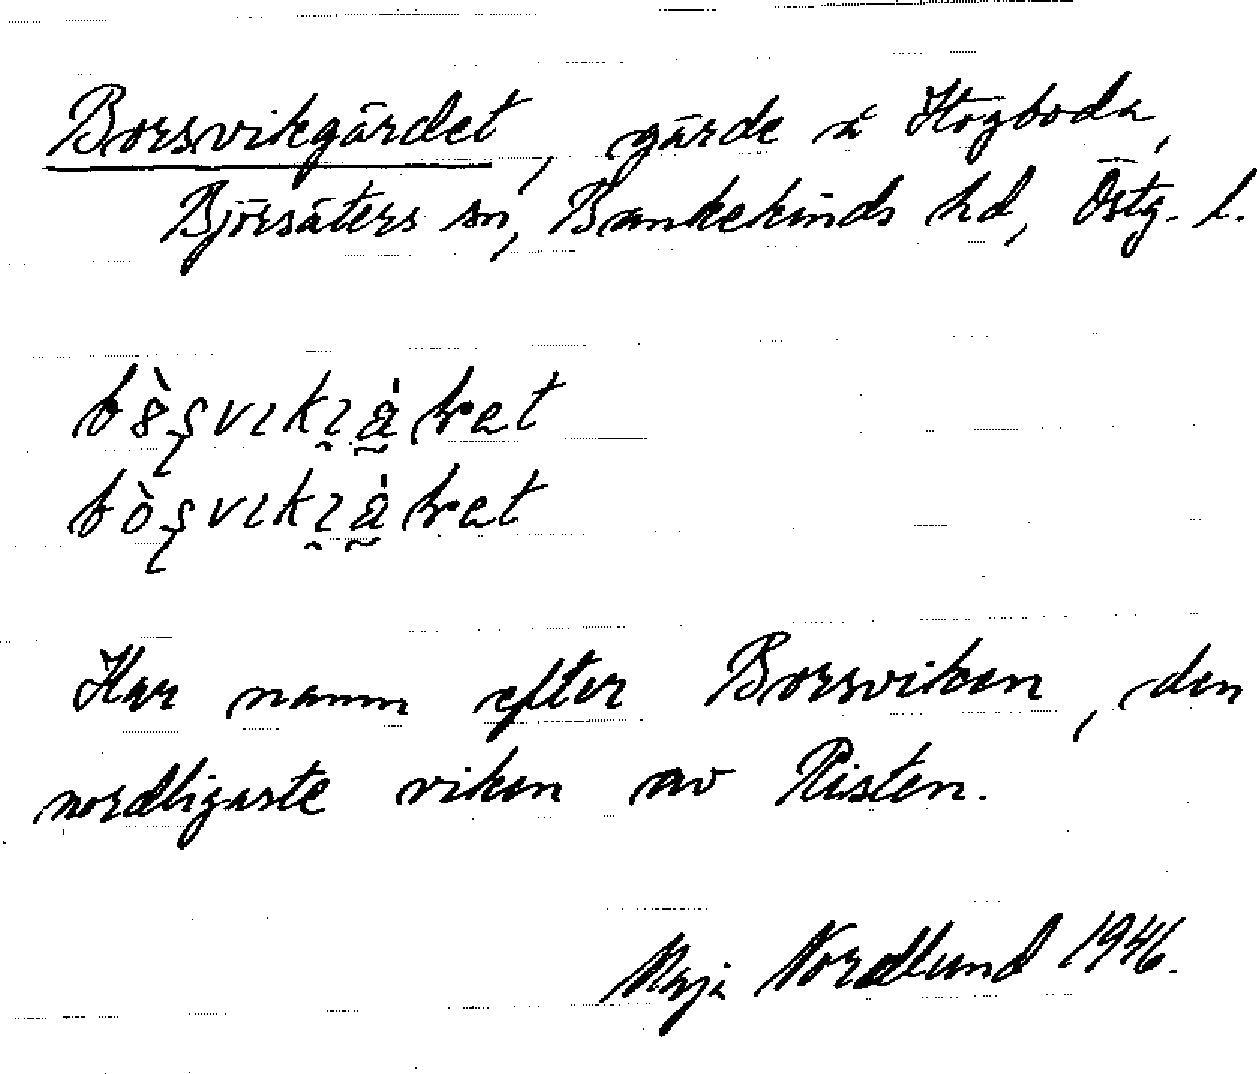 Borsvikgärdet, gärde i Högboda,
Björsäters sn, Bankekinds hd, Östg. l.
Har namn efter Borsviken, den
nordligaste viken av Risten.
Maja Nordlund 1946.